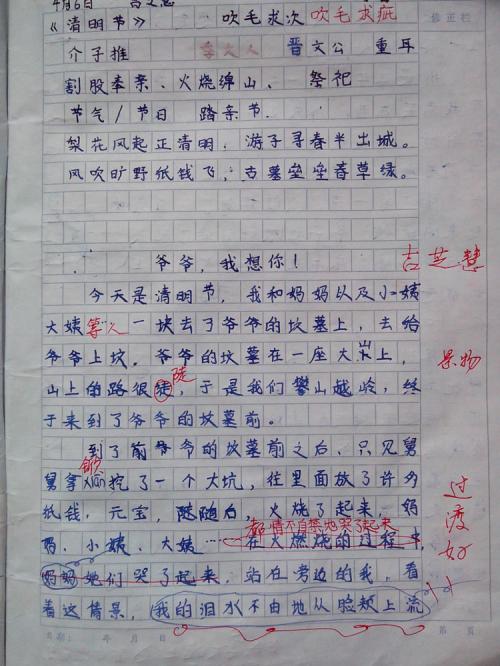 4月6日
《清明节》 吹毛求次 吹毛求疵 修正栏
介子推 李文人 晋文公 重耳
割股奉亲、火烧绵山、 祭祀
节气/节日 踏亲节.
梨花风起正清明，游子寻春半出城。
风吹旷野纸钱飞，古墓垒垒春草绿。
爷爷，我想你！ 吉芝慧
今天是清明节，我和妈妈以及小姨
大姨等人一块去了爷爷的坟墓上，去给
爷爷上坟。爷爷的坟墓在一座大山上， 景物
山上的路很徒陡，于是我们攀山越岭，终
于来到了爷爷的坟墓前。
到了前爷爷的坟墓前之后，只见舅
舅拿锹挖了一个大坑，往里面放了许多
纸钱，元宝，随随后，火烧了起来，妈 过渡好
都情不自禁地哭了起来
妈、小姨、大姨…在火燃烧的过程中，
妈妈她们哭了起来，站在旁边的我，看
着这情景，我的泪水不由地从脸颊上流
日期： 年 月 日 第 页